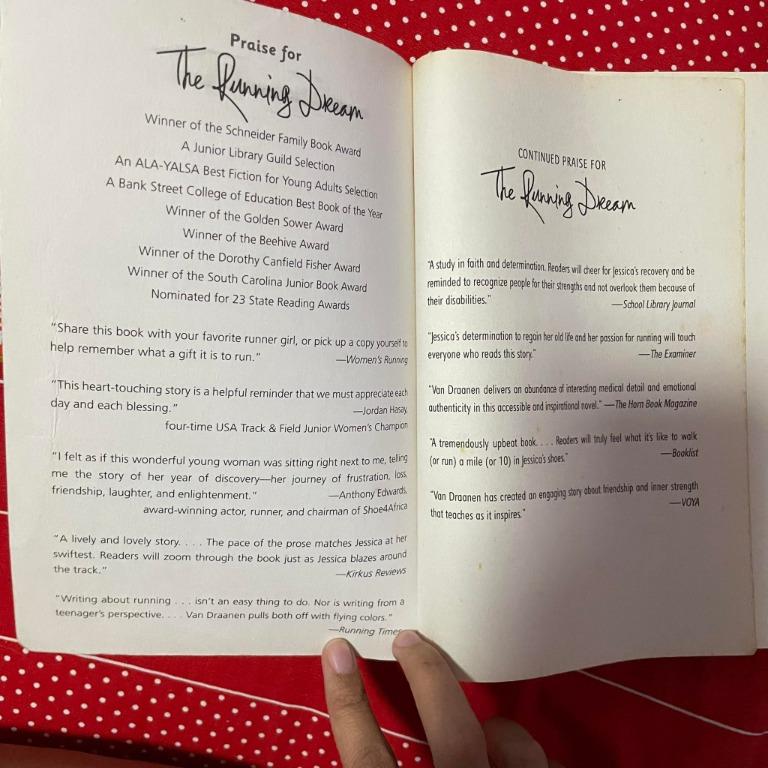 Praise for
The Running Dream
Winner of the Schneider Family Book Award
A Junior Library Guild Selection
An ALA-YALSA Best Fiction for Young Adults Selection
A Bank Street College of Education Best Book of the Year
Winner of the Golden Sower Award
Winner of the Beehive Award
Winner of the Dorothy Canfield Fisher Award
Winner of the South Carolina Junior Book Award
Nominated for 23 State Reading Awards
"Share this book with your favorite runner girl, or pick up a copy yourself to
help remember what a gift it is to run." —Women's Running
"This heart-touching story is a helpful reminder that we must appreciate each
day and each blessing." —Jordan Hasay,
four-time USA Track & Field Junior Women's Champion
"I felt as if this wonderful young woman was sitting right next to me, telling
me the story of her year of discovery—her journey of frustration, loss,
friendship, laughter, and enlightenment." —Anthony Edwards,
award-winning actor, runner, and chairman of Shoe4Africa
"A lively and lovely story. . . . The pace of the prose matches Jessica at her
swiftest. Readers will zoom through the book just as Jessica blazes around
the track." —Kirkus Reviews
"Writing about running . . . isn't an easy thing to do. Nor is writing from a
teenager's perspective. . . . Van Draanen pulls both off with flying colors."
—Running Times
CONTINUED PRAISE FOR
The Running Dream
"A study in faith and determination. Readers will cheer for Jessica's recovery and be
reminded to recognize people for their strengths and not overlook them because of
their disabilities." —School Library Journal
"Jessica's determination to regain her old life and her passion for running will touch
everyone who reads this story." —The Examiner
"Van Draanen delivers an abundance of interesting medical detail and emotional
authenticity in this accessible and inspirational novel." —The Horn Book Magazine
"A tremendously upbeat book. . . . Readers will truly feel what it's like to walk
(or run) a mile (or 10) in Jessica's shoes." —Booklist
"Van Draanen has created an engaging story about friendship and inner strength
that teaches as it inspires." —VOYA